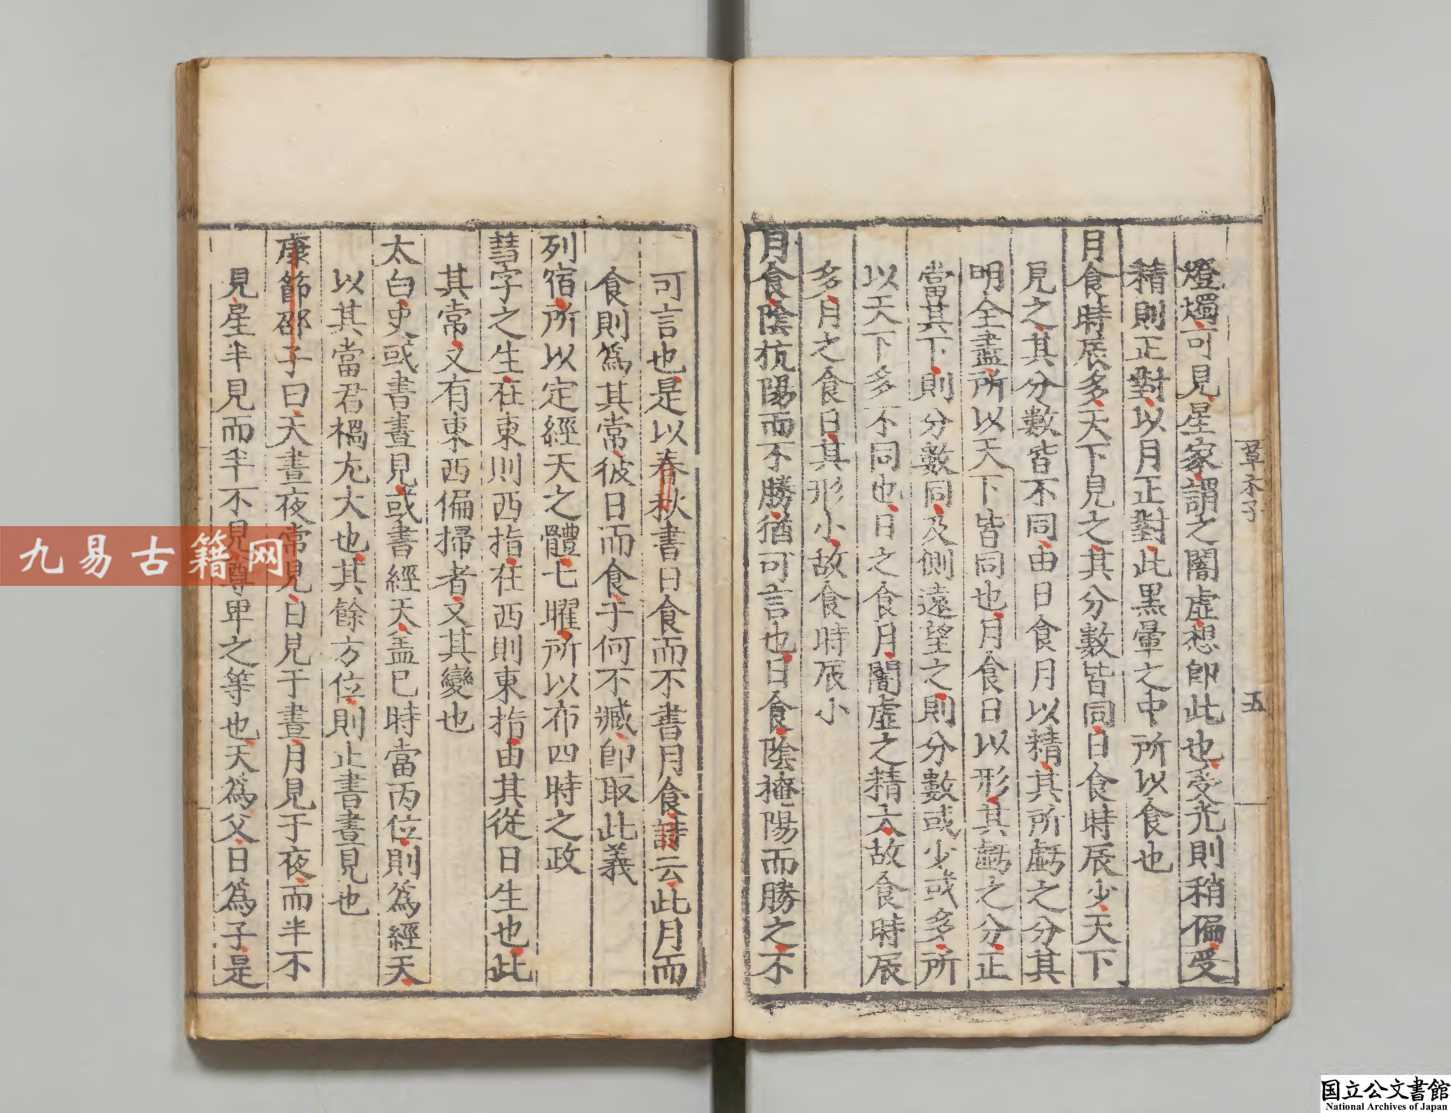 燈燭可見星家謂之闇虛想卽此也受光則稍偏受
精則正對以月正對此黑暈之中所以食也
月食時辰多天下見之其分數皆同日食時辰少天下
見之其分數皆不同由日食月以精其所虧之分其
明全盡所以天下皆同也月食日以形其虧之分正
當其下則分數同及側遠望之則分數或少或多所
以天下多不同也日之食月闇虛之精大故食時辰
多月之食日其形小故食時辰小
月食陰抗陽而不勝猶可言也日食陰掩陽而勝之不
草木子
五
可言也是以春秋書日食而不書月食詩云此月而
食則爲其常彼日而食于何不臧卽取此義
列宿所以定經天之體七曜所以布四時之政
彗字之生在東則西指在西則東指由其從日生也此
其常又有東西偏掃者又其變也
太白史或書晝見或書經天盖巳時當丙位則爲經天
以其當君禍尢大也其餘方位則止書晝見也
康節邵子曰天晝夜常見日見于晝月見于夜而半不
見星半見而半不見尊卑之等也天爲父日爲子是
九易古籍网
国立公文書館
National Archives of Japan